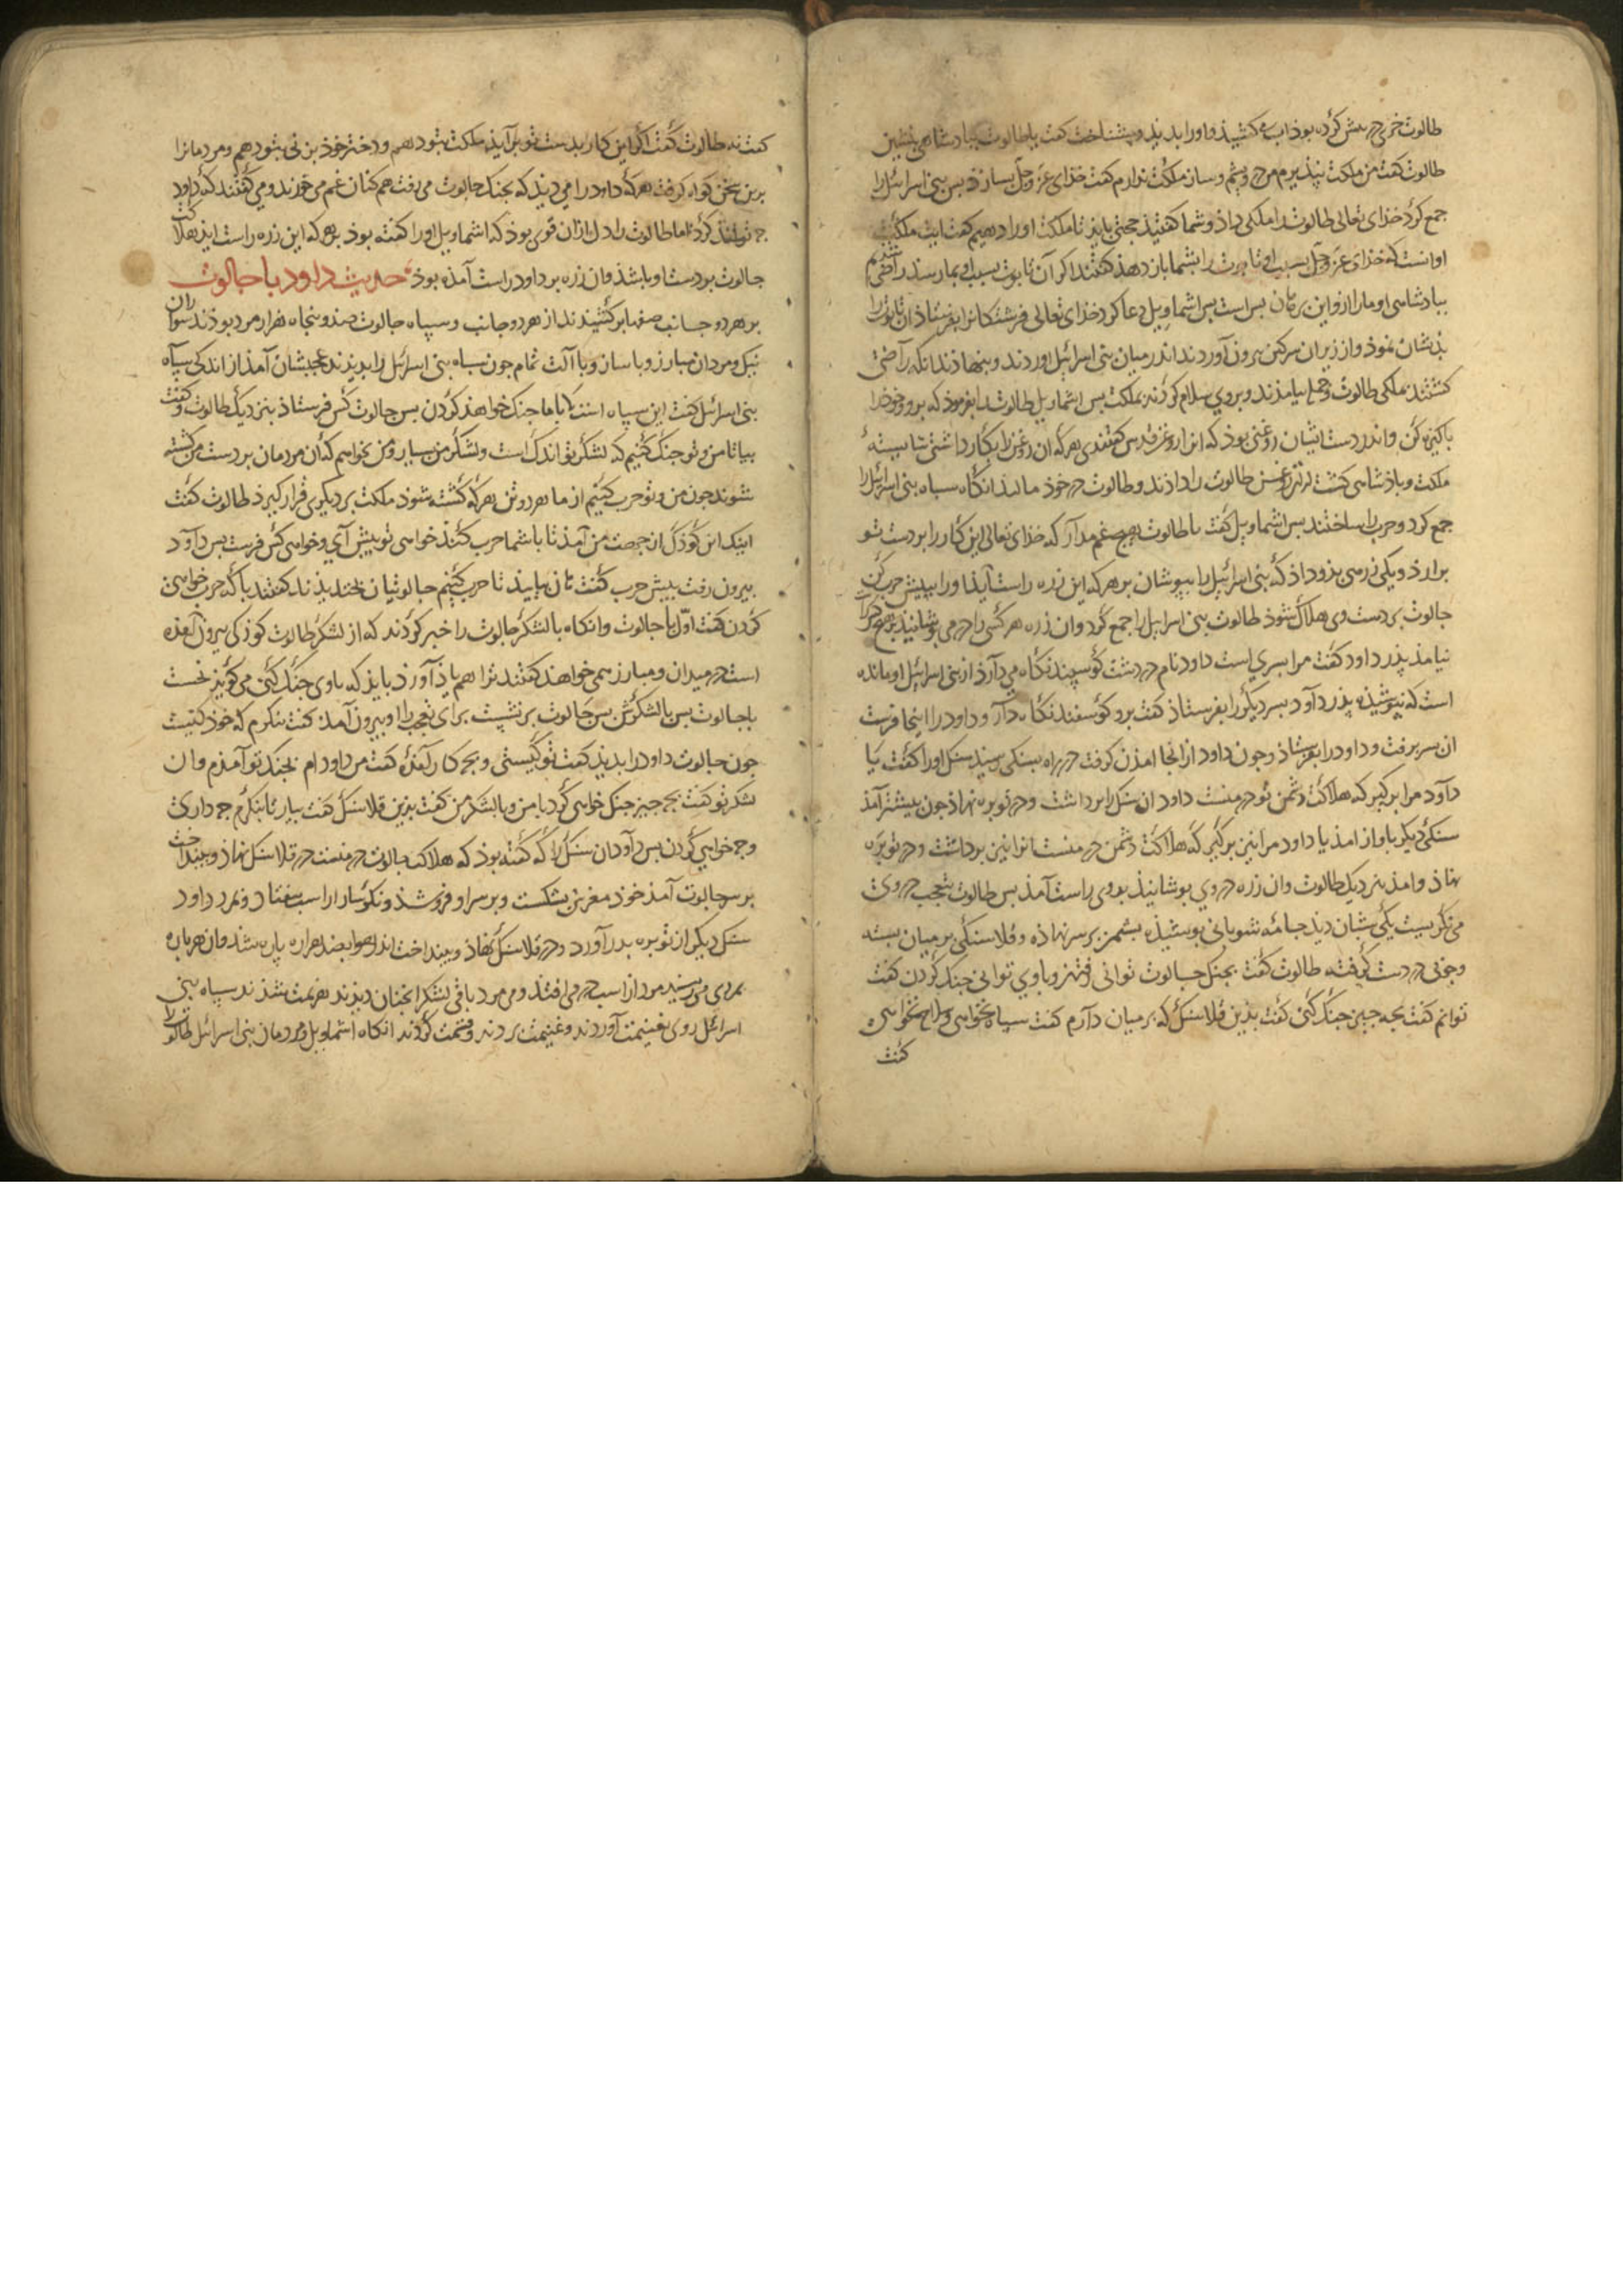 طالوت خری در پیش کرده بوذ اب می کشیذ و اورا بدید و بشناخت گفت یا طالوت بباذشاهی بنشین
طالوت گفت من ملکت نپذیرم من درویشم و ساز ملکت ندارم گفت خذای عز وجل بسازذ بس بنی اسرائیل را
جمع کرد خذای تعالی طالوت را ملکی داذ و شما گفتیذ حجتی بایذ تا ملکت اورا دهیم گفت ایت ملکت
او انست که خذای عز وجل بسبب او تابوت را بشما باز دهذ گفتند اکر آن تابوت بسبب او بما رسد راضی شدیم
ببادشاهی او مارا ازو این برهان بس است بس اشماویل دعا کرد خذای تعالی فرشتکانرا بفرستاذ ان تابوت را
بذیشان نموذ و از زیر ان سرکین برون آوردند اندر میان بنی اسرائیل اوردند و بنهاذند انکه راضی
کشتند بملکی طالوت و همه بیامذند و بروی سلام کردند بملکت بس اشماویل طالوت را بفرموذ که برو و خوذ را
باکیزه کن و اندر دست ایشان روغنی بوذ که انرا روغن قدس گفتندی هر که ان روغن را بکار داشتی شایسته
ملکت و باذشاهی کشتی ان روغن طالوت را داذند و طالوت در خوذ مالیذ انکاه سباه بنی اسرائیل را
جمع کرد و حرب را ساختند بس اشماویل گفت یا طالوت هیچ غم مدار که خذای تعالی این کار را بر دست تو
برارذ و یکی زرهی بذو داذ که بنی اسرائیل را بپوشان بر هر که این زره راست آیذ اورا ببیش حرب کن
جالوت بر دست وی هلاک شوذ طالوت بنی اسرائیل را جمع کرد و ان زره هر کسی را در می پوشانیذ بر هیچ کس راست
نیامذ پذر داود گفت مرا بسری است داود نام در دشت گوسپند نگاه می دارذ از بنی اسرائیل او مانده
است که نپوشیذه پذر داود بسر دیگر را بفرستاذ گفت برو گوسفند نگاه دار و داود را اینجا فرست
ان بسر برفت و داود را بفرستاذ و جون داود از انجا امذن گرفت در راه بسنگی رسید سنک اورا گفت یا
داود مرا برکیر که هلاکت دشمن تو در منست داود ان سنک را برداشت و در توبره نهاذ جون بیشتر آمذ
سنگی دیگر باواز امذ یا داود مرا نیز برکیر که هلاکت دشمن در منست انرا نیز برداشت و در توبره
نهاذ و امذ بنزدیک طالوت و ان زره در وی بوشانیذ بروی راست آمذ بس طالوت بتعجب در وی
می نگریست یکی شبان دید جامه شبانی بوشیذه بشمین بر سر نهاذه و فلاسنگی بر میان بسته
و جوبی در دست گرفته طالوت گفت بجنک جالوت توانی رفتن و باوی توانی جنک کردن گفت
توانم گفت بجه جیز جنک کنی گفت بذین فلاسنک که بر میان دارم گفت سباه نخواهی و سلاح نخواهی
گفت
گفت نه طالوت گفت اگر این کار بدست تو برآید ملکت بتو دهم و دختر خوذ بزنی بتو دهم و مردمانرا
برین سخن گواه گرفت هر که داود را می دید که بجنک جالوت می رفت همکنان غم می خورند و می گفتند که داود
چه تواند کرد اما طالوت را دل ازان قوی بوذ که اشماویل اورا گفته بوذ بر هر که این زره راست ایذ هلاکت
جالوت بر دست او باشذ و ان زره بر داود راست آمذه بوذ حدیث داود با جالوت
بر هر دو جانب صفها بر کشیذند از هر دو جانب و سپاه جالوت صذ و پنجاه هزار مرد بوذند سواران
نیک و مردان مبارز و با ساز و با آلت تمام جون سباه بنی اسرائیل را بدیذند عجبشان آمذ از اندکی سپاه
بنی اسرائیل گفت این سپاه است که با ما جنک خواهند کردن بس جالوت کس فرستاذ بنزدیک طالوت و گفت
بیا تا من و تو جنک کنیم که لشکر تو اندک است و لشکر من بسیار و من نخواهم که ان مردمان بر دست من کشته
شوند جون من و تو حرب کنیم از ما هر دو تن هر که کشته شوذ ملکت بر دیگری قرار گیرذ طالوت گفت
اینک این کوذک از جهت من آمذ تا با شما حرب کند خواهی تو پیش آی و خواهی کس فرست بس داود
بیرون رفت ببیش حرب گفت هان بیایذ تا حرب کنیم جالوتیان بخندیذند گفتند با که حرب خواهی
کردن گفت اول با جالوت و انکاه با لشکر جالوت را خبر کردند که از لشکر طالوت کوذکی بیرون آمده
است در میدان و مبارز همی خواهذ گفتند ترا هم یاذ آورد بایذ که باوی جنک کنی می گویذ نخست
با جالوت بس با لشکرش بس جالوت بر نشست برای تعجب را و بیرون آمذ گفت بنکرم که خوذ کیست
جون جالوت داود را بدید گفت تو کیستی و بجه کار آمده گفت من داود ام بجنک تو آمذم و ان
لشکر تو گفت بجه جیز جنک خواهی کرد با من و با لشکر من گفت بذین فلاسنک گفت بیار تا بنکرم چه داری
و چه خواهی کردن بس داود ان سنک را که گفته بوذ که هلاک جالوت در منست در فلاسنک نهاذ و بینداخت
بر سر جالوت آمذ خوذ و مغزش بشکست و بر سر او فرو شذ و نکوسار از اسب بیفتاذ و بمرد داود
سنک دیگر از توبره بدر آورد و در فلاسنک نهاذ و بینداخت اندر هوا بصد هزار پاره شذ و ان هر پاره
بمردی می رسید مرد از اسب در می افتذ و می مرد باقی لشکر انجنان دیذند بهزیمت شذند سپاه بنی
اسرائیل روی بغنیمت آوردند و غنیمت بردند و قسمت کردند انکاه اشماویل و مردمان بنی اسرائیل طالوت را